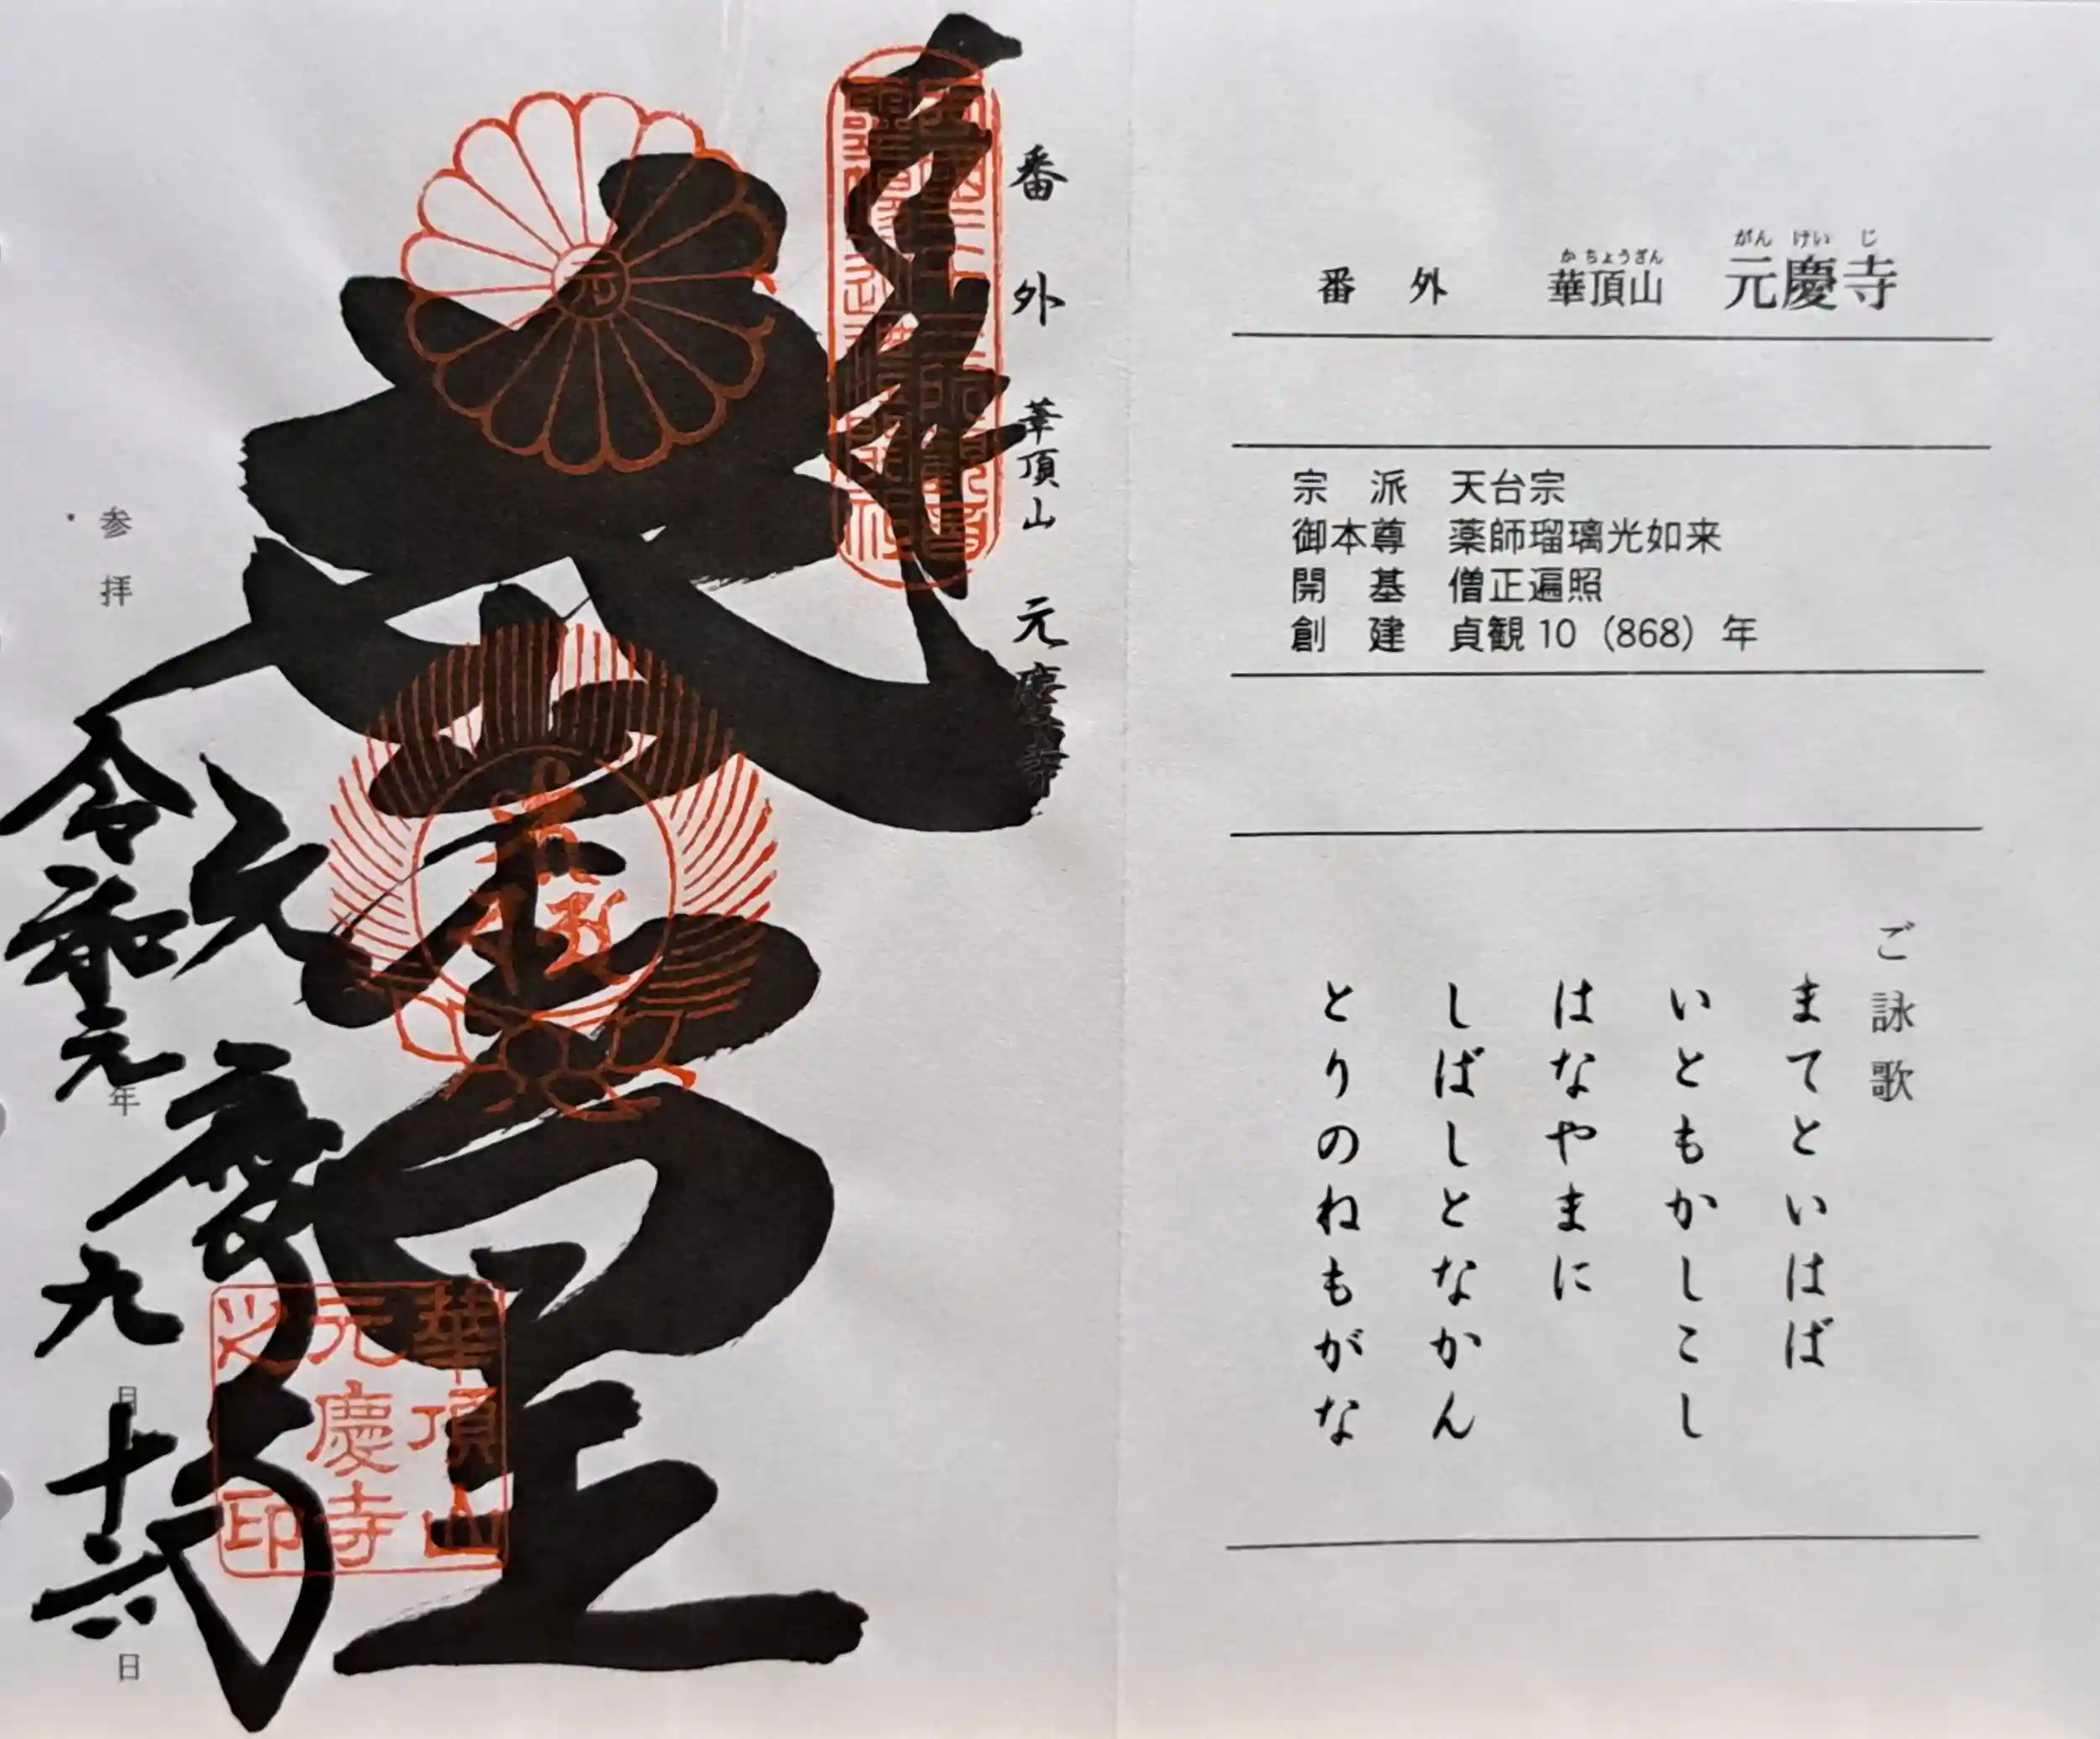 番外 華頂山 元慶寺
宗派 天台宗
御本尊 薬師瑠璃光如来
開基 僧正遍照
創建 貞観10（868）年
ご詠歌
まてといはば
いともかしこし
はなやまに
しばしとなかん
とりのねもがな
番外 華頂山 元慶寺
奉拝
元慶寺
華頂山
元慶寺
之印
参拝 令和元年九月十六日